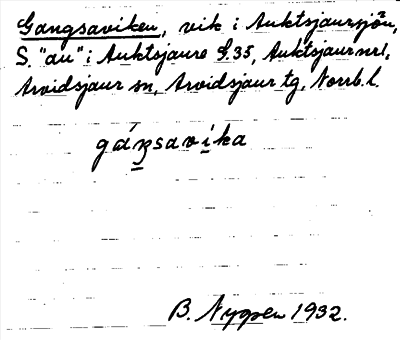 Gangsaviken, vik i Auktsjaursjön,
S. "au" i Auktsjaure G.35, Auktsjaur nr 1,
Arvidsjaur sn, Arvidsjaur tg, Norrb. l.
gáŋsavi̱ka
B. Nygren 1932.